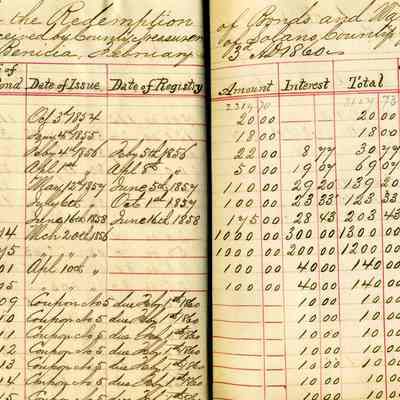 the Redemption of Bonds and
received by County Treasurer of Solano County
Benicia, February 3rd AD 1860
of
Bond Date of Issue Date of Registry Amount Interest Total
Oct 3rd 1854 20 00 20 00
Jany 4th 1855 18 00 18 00
Feby 4th 1856 Feby 5th 1856 22 00 8 77 30 77
Apl 1st " Apl 8th " 50 00 19 07 69 07
May 12th 1857 June 5th 1857 110 00 29 20 139 20
July 6th " Oct 1st 1857 100 00 23 33 123 33
June 16th 1858 June 16th 1858 175 00 28 43 203 43
Mch 20th 1856 1000 00 300 00 1300 00
" " " 1000 00 200 00 1200 00
Apl 10th " 100 00 40 00 140 00
" " " 100 00 40 00 140 00
09 Coupon No 5 due Feby 1st 1860 10 00 10 00
10 Coupon No 5 due Feby 1st 1860 10 00 10 00
11 Coupon No 5 due Feby 1st 1860 10 00 10 00
12 Coupon No 5 due Feby 1st 1860 10 00 10 00
13 Coupon No 5 due Feby 1st 1860 10 00 10 00
14 Coupon No 5 due Feby 1st 1860 10 00 10 00
15 Coupon No 5 due Feby 1st 1860 10 00 10 00